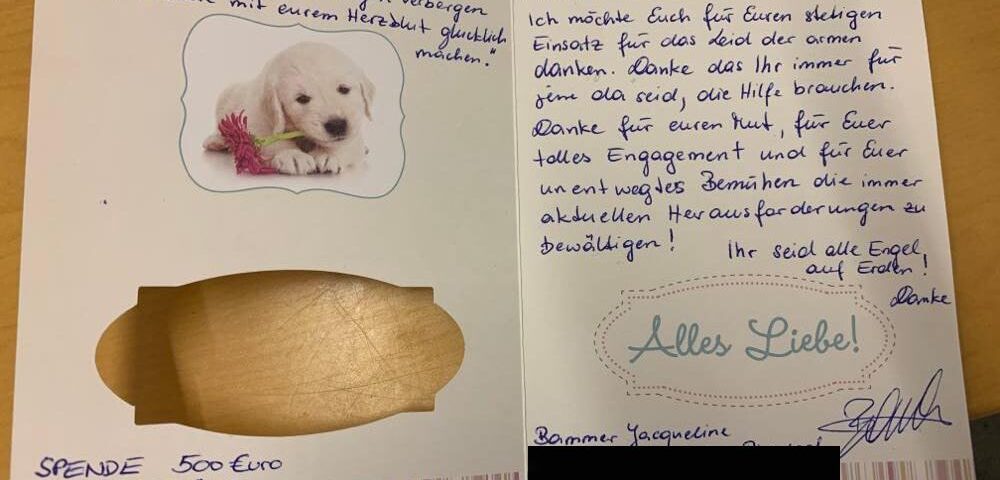 verbergen
mit eurem Herzblut glücklich
machen."
SPENDE 500 Euro
Ich möchte Euch für Euren stetigen
Einsatz für das Leid der armen
danken. Danke das Ihr immer für
jene da seid, die Hilfe brauchen.
Danke für euren Mut, für Euer
tolles Engagement und für Euer
unentwegtes Bemühen die immer
aktuellen Herausforderungen zu
bewältigen!
Ihr seid alle Engel
auf Erden!
Danke
Alles Liebe!
Bammer Jacqueline